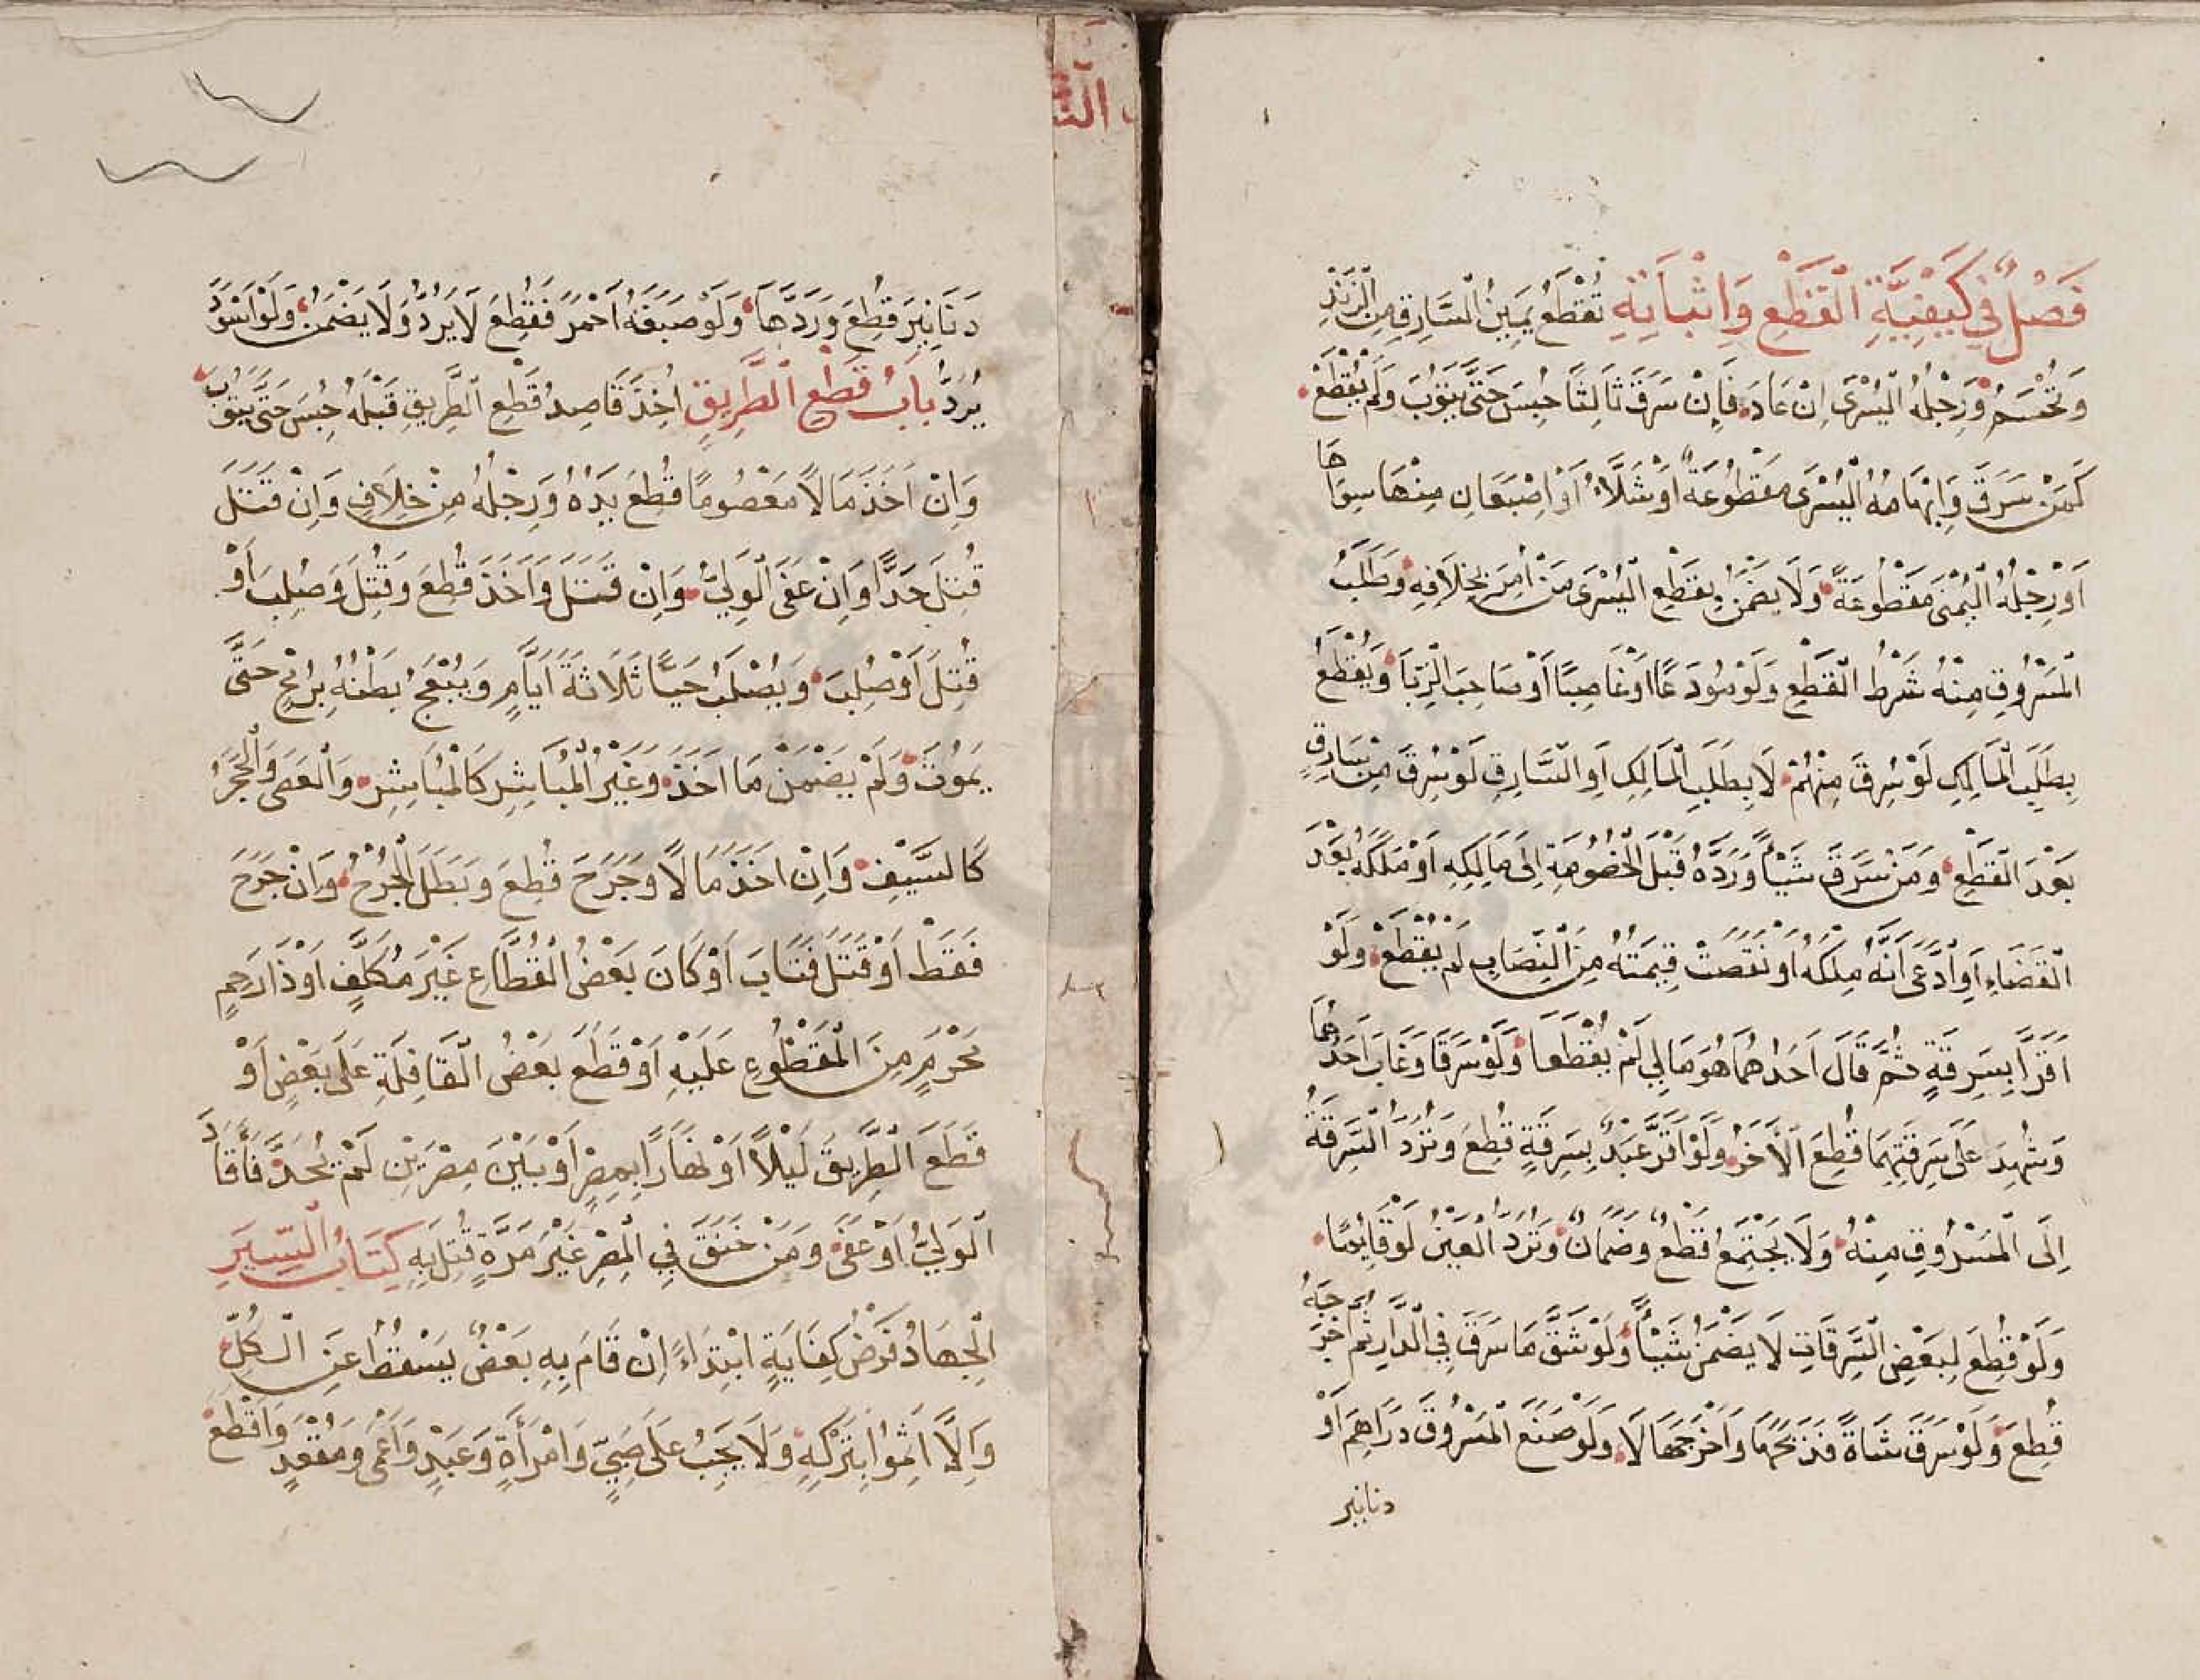 فَصْلٌ فِي كَيْفِيَّةِ الْقَطْعِ وَإِثْبَاتِهِ تُقْطَعُ يَمِينُ السَّارِقِ مِنَ الزَّنْدِ
وَتُحْسَمُ وَرِجْلُهُ الْيُسْرَى إِنْ عَادَ فَإِنْ سَرَقَ ثَالِثًا حُبِسَ حَتَّى يَتُوبَ وَلَمْ يُقْطَعْ
كَمَنْ سَرَقَ وَإِبْهَامُهُ الْيُسْرَى مَقْطُوعَةٌ أَوْ شَلَّاءُ أَوْ إِصْبَعَانِ مِنْهَا سِوَاهَا
أَوْ رِجْلُهُ الْيُمْنَى مَقْطُوعَةٌ وَلَا يَضْمَنُ بِقَطْعِ الْيُسْرَى مَنْ أُمِرَ بِخِلَافِهِ وَطَلَبُ
الْمَسْرُوقِ مِنْهُ شَرْطُ الْقَطْعِ وَلَوْ مُودَعًا أَوْ غَاصِبًا أَوْ صَاحِبَ الرِّبَا وَيُقْطَعُ
بِطَلَبِ الْمَالِكِ لَوْ سُرِقَ مِنْهُمْ لَا بِطَلَبِ الْمَالِكِ أَوِ السَّارِقِ لَوْ سُرِقَ مِنْ سَارِقٍ
بَعْدَ الْقَطْعِ وَمَنْ سَرَقَ شَيْئًا وَرَدَّهُ قَبْلَ الْخُصُومَةِ إِلَى مَالِكِهِ أَوْ مَلَكَهُ بَعْدَ
الْقَضَاءِ أَوِ ادَّعَى أَنَّهُ مِلْكُهُ أَوْ نَقَصَتْ قِيمَتُهُ مِنَ النِّصَابِ لَمْ يُقْطَعْ وَلَوْ
أَقَرَّا بِسَرِقَةٍ ثُمَّ قَالَ أَحَدُهُمَا هُوَ مَالِي لَمْ يُقْطَعَا وَلَوْ سَرَقَا وَغَابَ أَحَدُهُمَا
وَشُهِدَ عَلَى سَرِقَتِهِمَا قُطِعَ الْآخَرُ وَلَوْ أَقَرَّ عَبْدٌ بِسَرِقَةٍ قُطِعَ وَتُرَدُّ السَّرِقَةُ
إِلَى الْمَسْرُوقِ مِنْهُ وَلَا يَجْتَمِعُ قَطْعٌ وَضَمَانٌ وَتُرَدُّ الْعَيْنُ لَوْ قَائِمًا
وَلَوْ قُطِعَ لِبَعْضِ السَّرِقَاتِ لَا يَضْمَنُ شَيْئًا وَلَوْ شَقَّ مَا سَرَقَ فِي الدَّارِ ثُمَّ أَخْرَجَهُ
قُطِعَ وَلَوْ سَرَقَ شَاةً فَذَبَحَهَا وَأَخْرَجَهَا لَا وَلَوْ صَنَعَ الْمَسْرُوقَ دَرَاهِمَ أَوْ
دنانير
دَنَانِيرَ قُطِعَ وَرَدَّهَا وَلَوْ صَبَغَهُ أَحْمَرَ فَقُطِعَ لَا يَرُدُّ وَلَا يَضْمَنُ وَلَوْ أَسْوَدَ
يُرَدُّ بَابُ قَطْعِ الطَّرِيقِ أُخِذَ قَاصِدُ قَطْعِ الطَّرِيقِ قَبْلَهُ حُبِسَ حَتَّى يَتُوبَ
وَإِنْ أَخَذَ مَالًا مَعْصُومًا قُطِعَ يَدُهُ وَرِجْلُهُ مِنْ خِلَافٍ وَإِنْ قَتَلَ
قُتِلَ حَدًّا وَإِنْ عَفَى الْوَلِيُّ وَإِنْ قَتَلَ وَأَخَذَ قُطِعَ وَقُتِلَ وَصُلِبَ أَوْ
قُتِلَ أَوْ صُلِبَ وَيُصْلَبُ حَيًّا ثَلَاثَةَ أَيَّامٍ وَيُبْعَجُ بَطْنُهُ بِرُمْحٍ حَتَّى
يَمُوتَ وَلَمْ يَضْمَنْ مَا أَخَذَ وَغَيْرُ الْمُبَاشِرِ كَالْمُبَاشِرِ وَالْعَصَى وَالْحَجَرُ
كَالسَّيْفِ وَإِنْ أَخَذَ مَالًا وَجَرَحَ قُطِعَ وَبَطَلَ الْجُرْحُ وَإِنْ جَرَحَ
فَقَطْ أَوْ قَتَلَ فَتَابَ أَوْ كَانَ بَعْضُ الْقُطَّاعِ غَيْرَ مُكَلَّفٍ أَوْ ذَا رَحِمٍ
مَحْرَمٍ مِنَ الْمَقْطُوعِ عَلَيْهِ أَوْ قَطَعَ بَعْضُ الْقَافِلَةِ عَلَى بَعْضٍ أَوْ
قَطَعَ الطَّرِيقَ لَيْلًا أَوْ نَهَارًا بِمِصْرٍ أَوْ بَيْنَ مِصْرَيْنِ لَمْ يُحَدَّ فَأَقَادَ
الْوَلِيُّ أَوْ عَفَى وَمَنْ خَنَقَ فِي الْمِصْرِ غَيْرَ مَرَّةٍ قُتِلَ بِهِ كِتَابُ السِّيَرِ
الْجِهَادُ فَرْضُ كِفَايَةٍ ابْتِدَاءً إِنْ قَامَ بِهِ بَعْضٌ يَسْقُطُ عَنِ الْكُلِّ
وَإِلَّا أَثِمُوا بِتَرْكِهِ وَلَا يَجِبُ عَلَى صَبِيٍّ وَامْرَأَةٍ وَعَبْدٍ وَأَعْمَى وَمُقْعَدٍ وَأَقْطَعَ